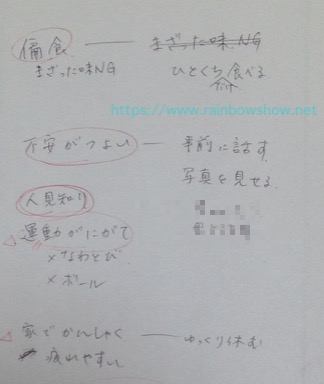 偏食 ― まざった味NG
まざった味NG ひとくち食べる
https://www.rainbowshow.net
不安がつよい ― 事前に話す
写真を見せる
人見知り
△運動がにがて
×なわとび
×ボール
△家でかんしゃく ― ゆっくり休む
疲れやすい